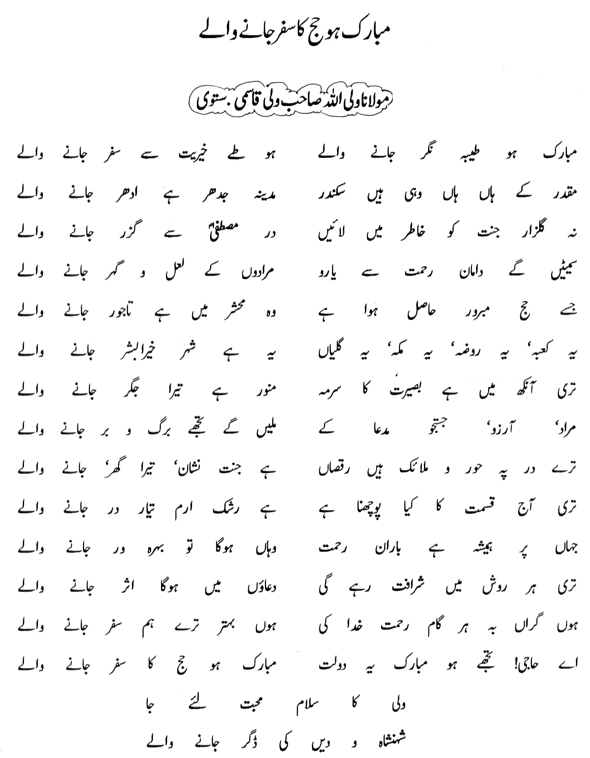 مبارک ہو حج کا سفر جانے والے
مولانا ولی اللہ صاحب ولی قاسمی . بستوی
مبارک ہو طیبہ نگر جانے والے ہو طے خیریت سے سفر جانے والے
مقدر کے ہاں ہاں وہی ہیں سکندر مدینہ جدھر ہے ادھر جانے والے
نہ گلزار جنت کو خاطر میں لائیں در مصطفیٰؐ سے گزر جانے والے
سمیٹیں گے دامان رحمت سے یارو مرادوں کے لعل و گہر جانے والے
جسے حج مبرور حاصل ہوا ہے وہ محشر میں ہے تاجور جانے والے
یہ کعبہ‘ یہ روضہ‘ یہ مکہ‘ یہ گلیاں یہ ہے شہر خیرالبشر جانے والے
تری آنکھ میں ہے بصیرت کا سرمہ منور ہے تیرا جگر جانے والے
مراد‘ آرزو‘ جستجو مدعا کے ملیں گے تجھے برگ و بر جانے والے
ترے در پہ حور و ملائک ہیں رقصاں ہے جنت نشان‘ تیرا گھر‘ جانے والے
تری آج قسمت کا کیا پوچھنا ہے ہے رشک ارم تیار در جانے والے
جہاں پر ہمیشہ ہے باران رحمت وہاں ہوگا تو بہرہ ور جانے والے
تری ہر روش میں شرافت رہے گی دعاؤں میں ہوگا اثر جانے والے
ہوں گراں بہ ہر گام رحمت خدا کی ہوں بہتر ترے ہم سفر جانے والے
اے حاجی! تجھے ہو مبارک یہ دولت مبارک ہو حج کا سفر جانے والے
ولی کا سلام محبت لئے جا
شہنشاہ و دیں کی ڈگر جانے والے